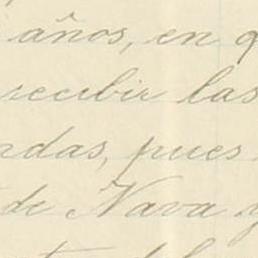 años, en q
recibir las
ndas, pues
de Nava y